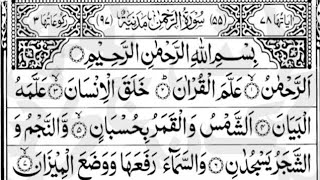 اٰيَاتُهَا ٧٨ (٥٥) سُوْرَةُ الرَّحْمٰنِ مَدَنِيَّةٌ (٩٧) رُكُوْعَاتُهَا ٣
بِسْمِ اللّٰهِ الرَّحْمٰنِ الرَّحِيْمِ
اَلرَّحْمٰنُ ۝١ عَلَّمَ الْقُرْاٰنَ ۝٢ خَلَقَ الْاِنْسَانَ ۝٣ عَلَّمَهُ
الْبَيَانَ ۝٤ اَلشَّمْسُ وَالْقَمَرُ بِحُسْبَانٍ ۝٥ وَّالنَّجْمُ وَ
الشَّجَرُ يَسْجُدٰنِ ۝٦ وَالسَّمَآءَ رَفَعَهَا وَوَضَعَ الْمِيْزَانَ ۝٧